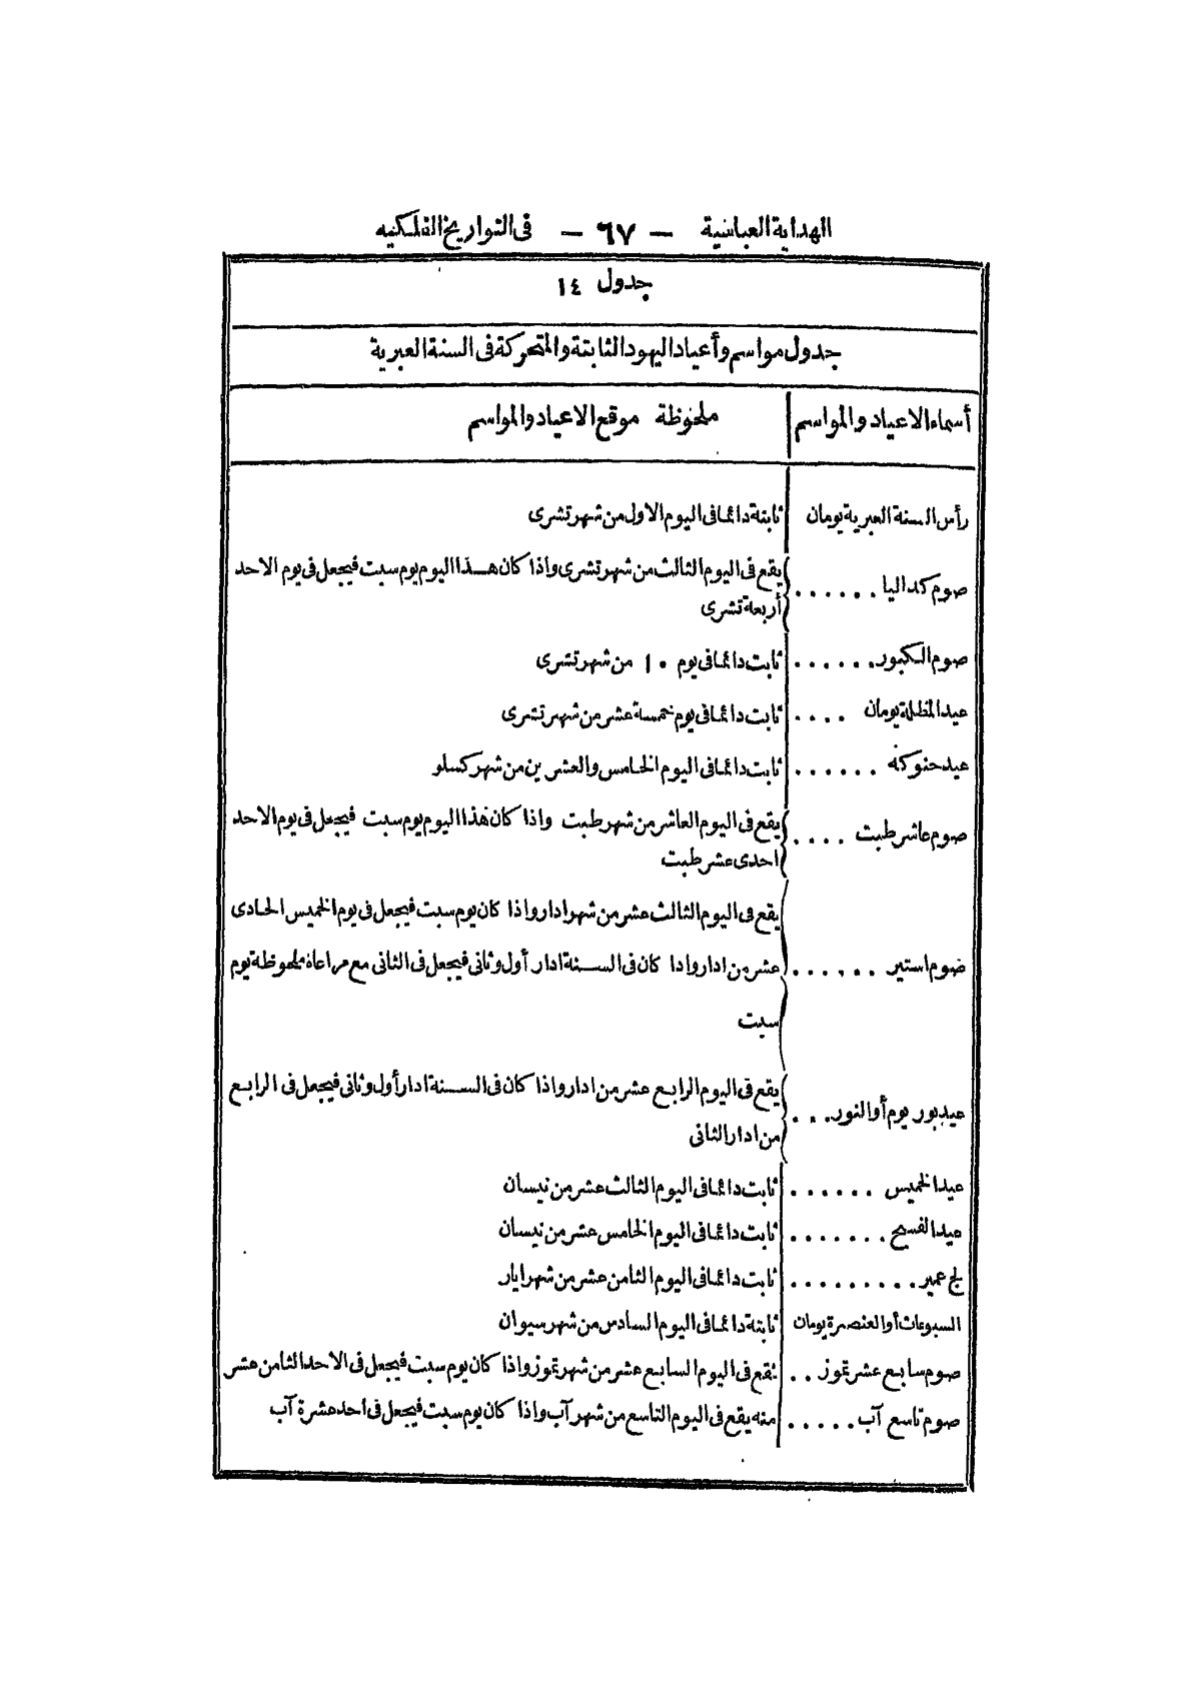 الهداية العباسية — ٦٧ — فى التواريخ الفلكيه
جدول ١٤
جدول مواسم وأعياد اليهود الثابتة والمتحركة فى السنة العبرية
أسماء الاعياد والمواسم ملحوظة موقع الاعياد والمواسم
رأس السنة العبرية يومان ثابتة دائما فى اليوم الاول من شهر تشرى
يقع فى اليوم الثالث من شهر تشرى واذا كان هذا اليوم يوم سبت فيجعل فى يوم الاحد
صوم كداليا ......
أربعة تشرى
صوم الكبور ...... ثابت دائما فى يوم ١٠ من شهر تشرى
عيد المظلة يومان .... ثابت دائما فى يوم خمسة عشر من شهر تشرى
عيد حنوكه ...... ثابت دائما فى اليوم الخامس والعشرين من شهر كسلو
يقع فى اليوم العاشر من شهر طبت واذا كان هذا اليوم يوم سبت فيجعل فى يوم الاحد
صوم عاشر طبت ....
احدى عشر طبت
يقع فى اليوم الثالث عشر من شهر ادار واذا كان يوم سبت فيجعل فى يوم الخميس الحادى
صوم استير ...... عشر من ادار واذا كان فى السنة ادار أول وثانى فيجعل فى الثانى مع مراعاة ملحوظة يوم
سبت
يقع فى اليوم الرابع عشر من ادار واذا كان فى السنة ادار أول وثانى فيجعل فى الرابع
عيد بور يوم أوالنور ...
من ادار الثانى
عيد الخميس ...... ثابت دائما فى اليوم الثالث عشر من نيسان
عيد الفسح ....... ثابت دائما فى اليوم الخامس عشر من نيسان
لج عمير ......... ثابت دائما فى اليوم الثامن عشر من شهر ايار
السبوعات أوالعنصرة يومان ثابتة دائما فى اليوم السادس من شهر سيوان
صوم سابع عشر تموز .. يقع فى اليوم السابع عشر من شهر تموز واذا كان يوم سبت فيجعل فى الاحد الثامن عشر
صوم تاسع آب ..... منه يقع فى اليوم التاسع من شهر آب واذا كان يوم سبت فيجعل فى أحد عشرة آب